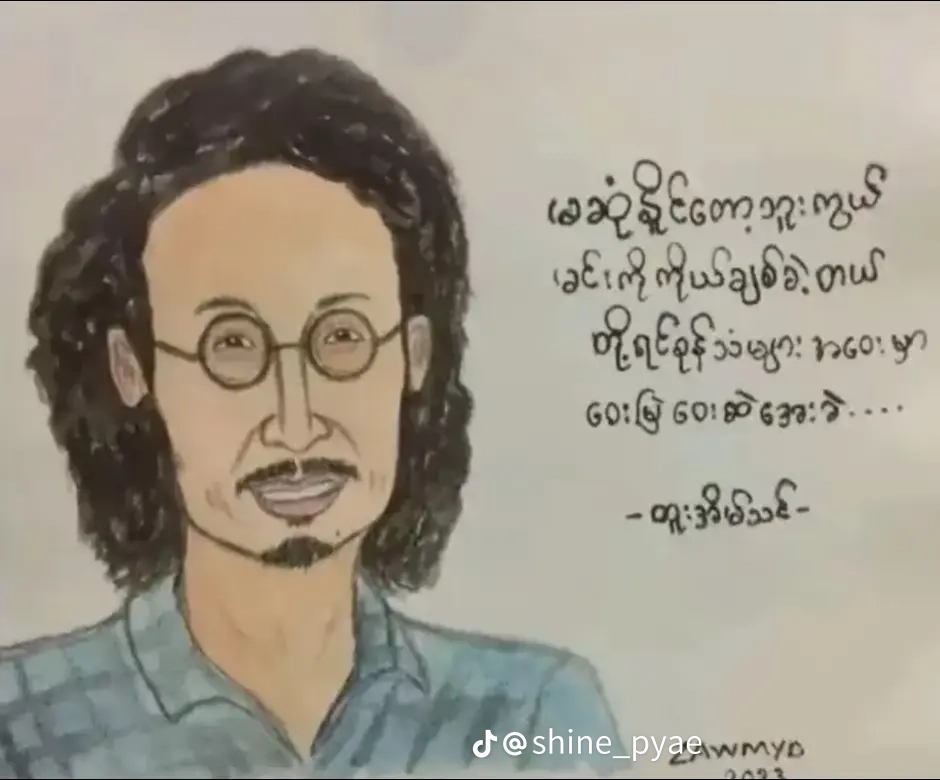 မဆုံနိူင်တော့ဘူးကွယ်
ခင့်ကို ကိုယ်ချစ်ခဲ့တယ်
တို့ရင်ခုန်သံများ အဝေးမှာ
ဝေးမြဲ ဝေးဆဲ အေးခဲ....
-ထူးအိမ်သင်-
@shine_pyae
ZAWMYO
2023